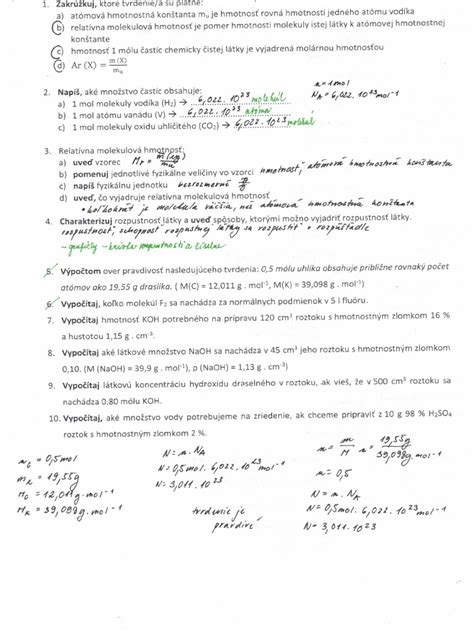 1. Zakrúžkuj, ktoré tvrdenie/a sú platné:
a) atómová hmotnostná konštanta mᵤ je hmotnosť rovná hmotnosti jedného atómu vodíka
b) relatívna molekulová hmotnosť je pomer hmotnosti molekuly istej látky k atómovej hmotnostnej
konštante
c) hmotnosť 1 mólu častíc chemicky čistej látky je vyjadrená molárnou hmotnosťou
d) Ar (X) = m (X) / mᵤ
n = 1mol
2. Napíš, aké množstvo častíc obsahuje: NA = 6,022 . 10²³ mol⁻¹
a) 1 mol molekuly vodíka (H₂) → 6,022 . 10²³ molekúl
b) 1 mol atómu vanádu (V) → 6,022 . 10²³ atómov
c) 1 mol molekuly oxidu uhličitého (CO₂) → 6,022 . 10²³ molekúl
3. Relatívna molekulová hmotnosť:
a) uveď vzorec Mr =
b) pomenuj jednotlivé fyzikálne veličiny vo vzorci hmotnosť, atómová hmotnostná konštanta
c) napíš fyzikálnu jednotku bezrozmerná
d) uveď, čo vyjadruje relatívna molekulová hmotnosť
koľkokrát je molekula väčšia, než atómová hmotnostná konštanta
4. Charakterizuj rozpustnosť látky a uveď spôsoby, ktorými možno vyjadriť rozpustnosť látky.
rozpustnosť, schopnosť rozpustnej látky sa rozpustiť v rozpúšťadle
- graficky - krivka rozpustnosti a číselne
5. Výpočtom over pravdivosť nasledujúceho tvrdenia: 0,5 mólu uhlíka obsahuje približne rovnaký počet
atómov ako 19,55 g draslíka. ( M(C) = 12,011 g . mol⁻¹, M(K) = 39,098 g . mol⁻¹)
6. Vypočítaj, koľko molekúl F₂ sa nachádza za normálnych podmienok v 5 l fluóru.
7. Vypočítaj hmotnosť KOH potrebného na prípravu 120 cm³ roztoku s hmotnostným zlomkom 16 %
a hustotou 1,15 g . cm⁻³.
8. Vypočítaj aké látkové množstvo NaOH sa nachádza v 45 cm³ jeho roztoku s hmotnostným zlomkom
0,10. (M (NaOH) = 39,9 g . mol⁻¹), ρ (NaOH) = 1,13 g . cm⁻³)
9. Vypočítaj látkovú koncentráciu hydroxidu draselného v roztoku, ak vieš, že v 500 cm³ roztoku sa
nachádza 0,80 mólu KOH.
10. Vypočítaj, aké množstvo vody potrebujeme na zriedenie, ak chceme pripraviť z 10 g 98 % H₂SO₄
roztok s hmotnostným zlomkom 2 %.
nC = 0,5mol N = n . NA n = m / M n = 19,55g / 39,098g . mol⁻¹
mK = 19,55g N = 0,5mol . 6,022 . 10²³ mol⁻¹ n = 0,5
MC = 12,011g . mol⁻¹ N = 3,011 . 10²³ N = n . NA
MK = 39,098g . mol⁻¹ tvrdenie je N = 0,5mol . 6,022 . 10²³ mol⁻¹
pravdivé N = 3,011 . 10²³